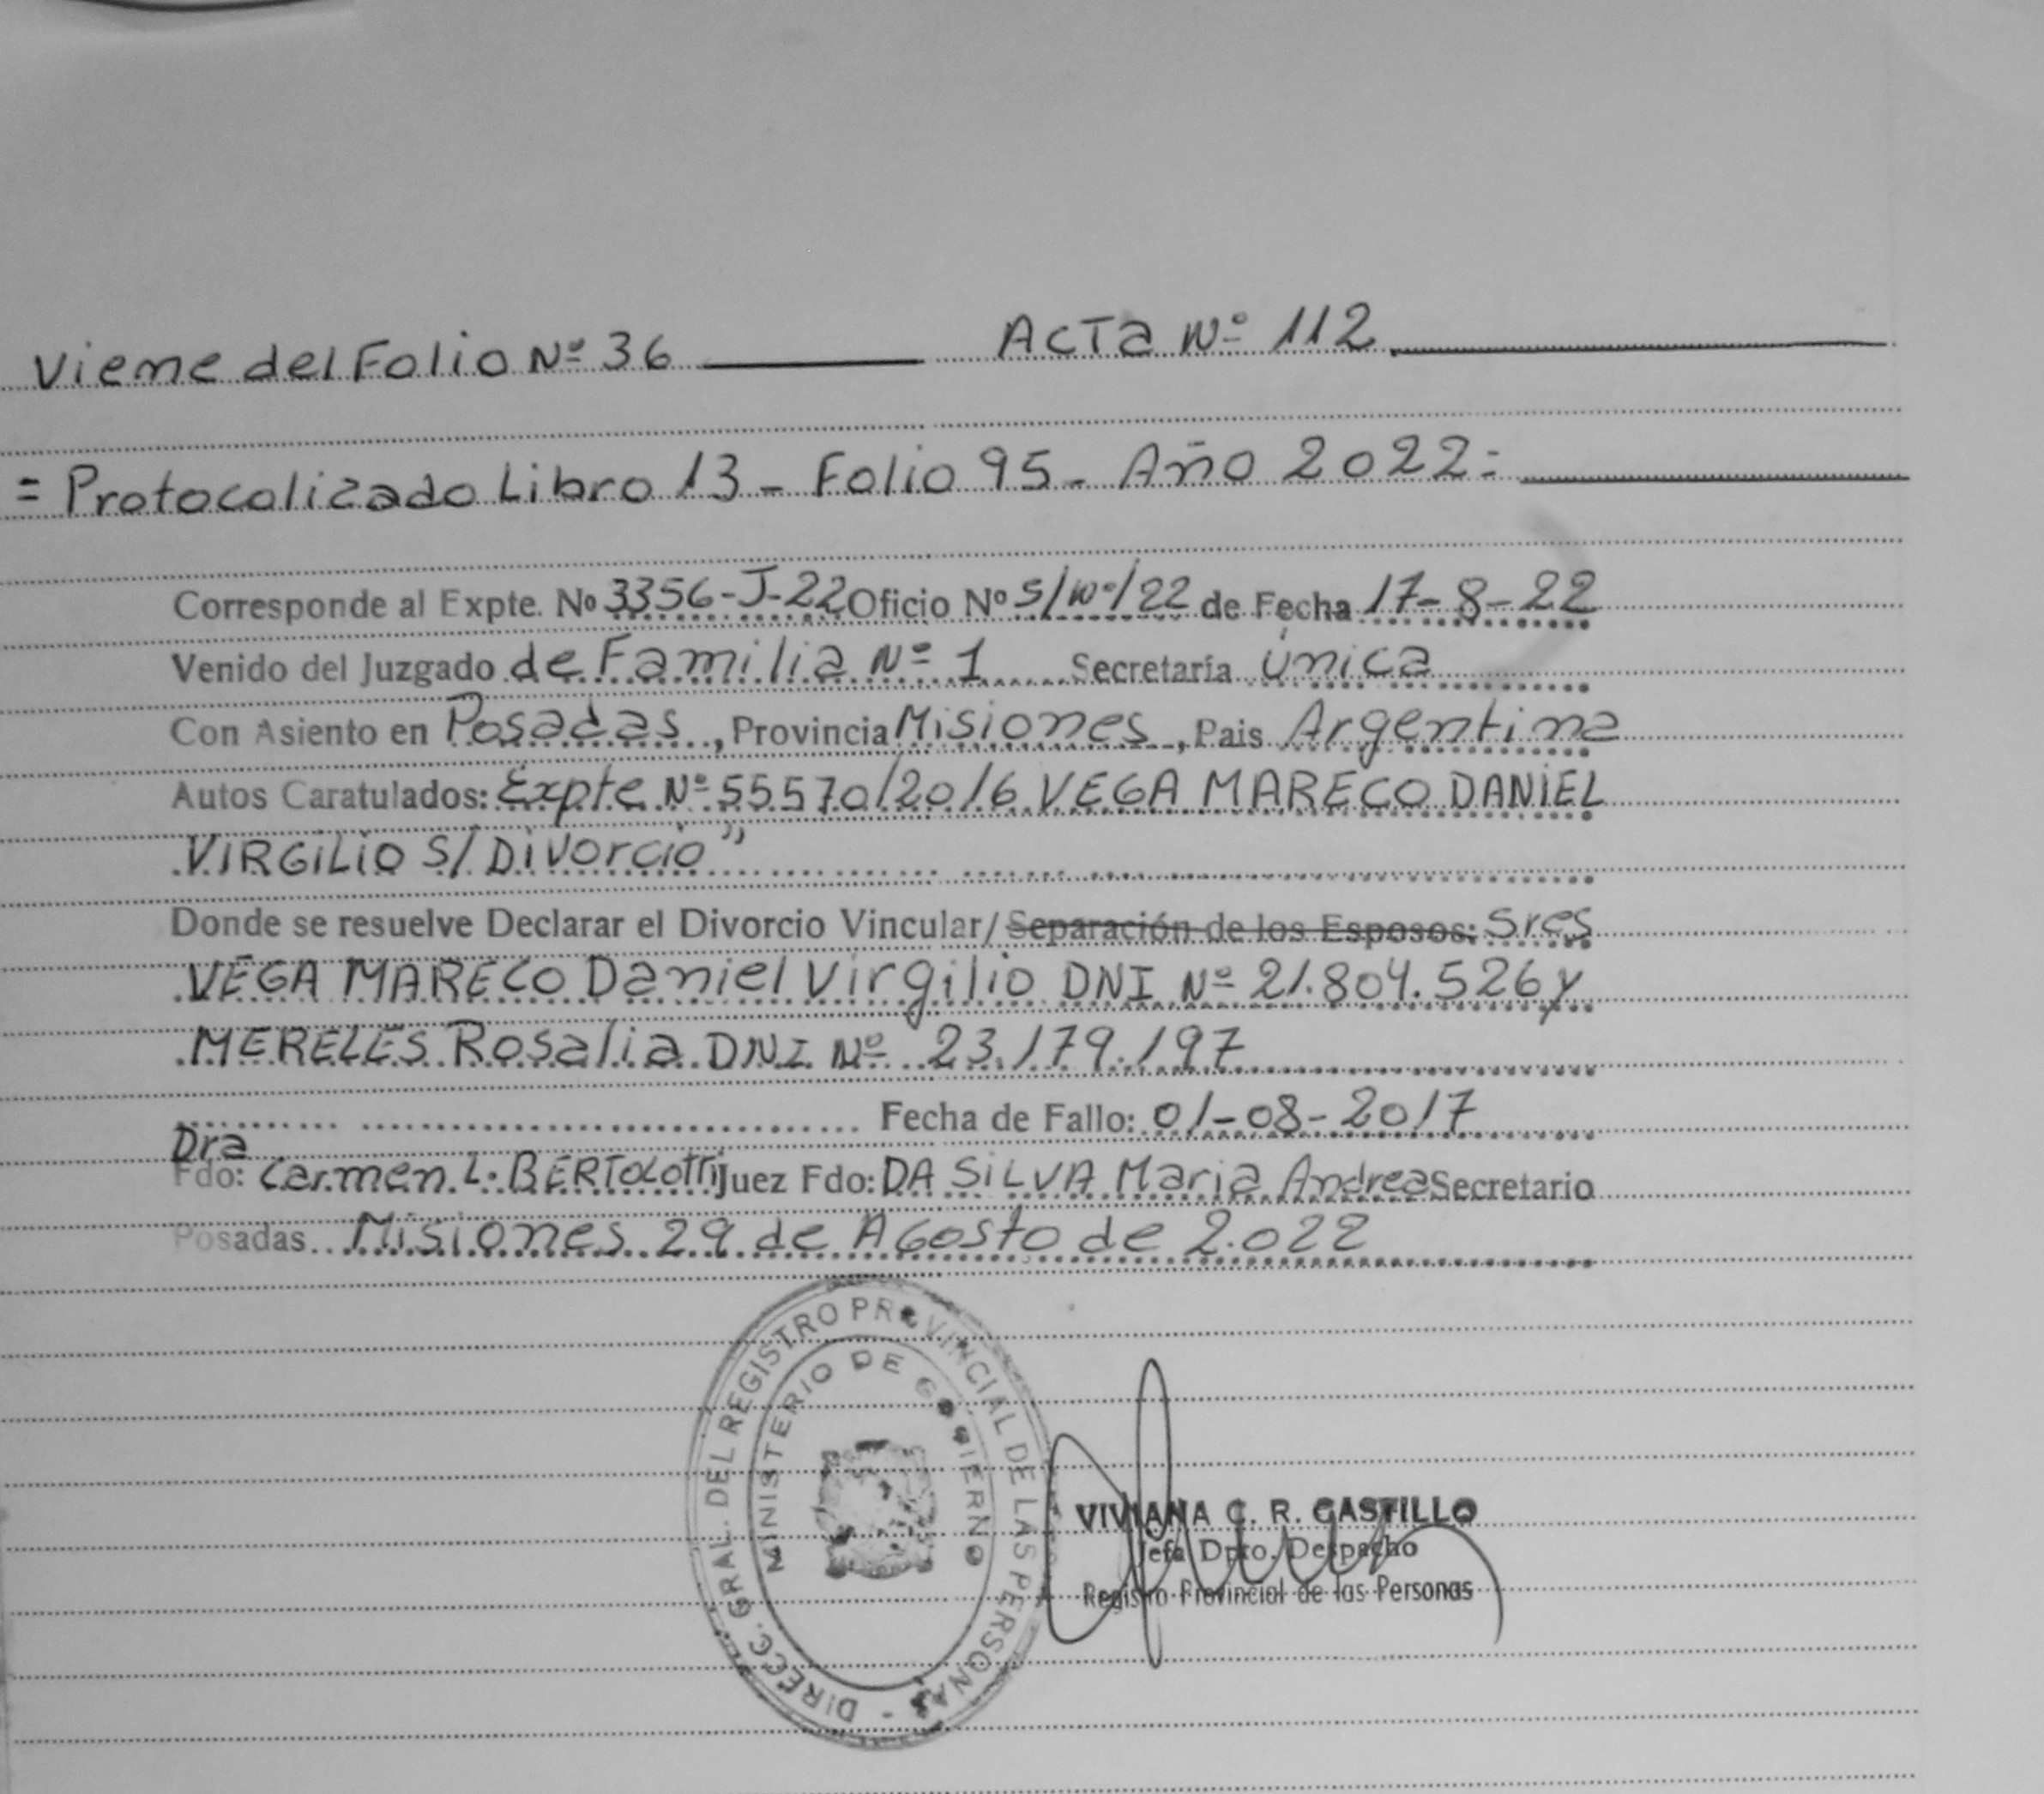 Viene del Folio Nº 36 ACTA Nº 112
= Protocolizado Libro 13 - Folio 95 - Año 2022 =
Corresponde al Expte. Nº 3356-J-22 Oficio Nº S/Nº/22 de Fecha 17-8-22
Venido del Juzgado de Familia Nº 1 Secretaría única
Con Asiento en Posadas, Provincia Misiones, Pais Argentina
Autos Caratulados: Expte Nº 55570/2016 VEGA MARECO DANIEL
VIRGILIO S/ Divorcio”
Donde se resuelve Declarar el Divorcio Vincular/ Separación de los Esposos: Sres
VEGA MARECO Daniel Virgilio DNI Nº 21.804.526 y
MERELES Rosalia DNI Nº 23.179.197
Fecha de Fallo: 01-08-2017
Dra
Fdo: Carmen L. BERTOLOTTI Juez Fdo: DA SILVA Maria Andrea Secretario
Posadas Misiones 29 de Agosto de 2.022
DIRECC. GRAL. DEL REGISTRO PROVINCIAL DE LAS PERSONAS -
MINISTERIO DE GOBIERNO
VIVIANA C. R. CASTILLO
Jefa Dpto. Despacho
Registro Provincial de las Personas